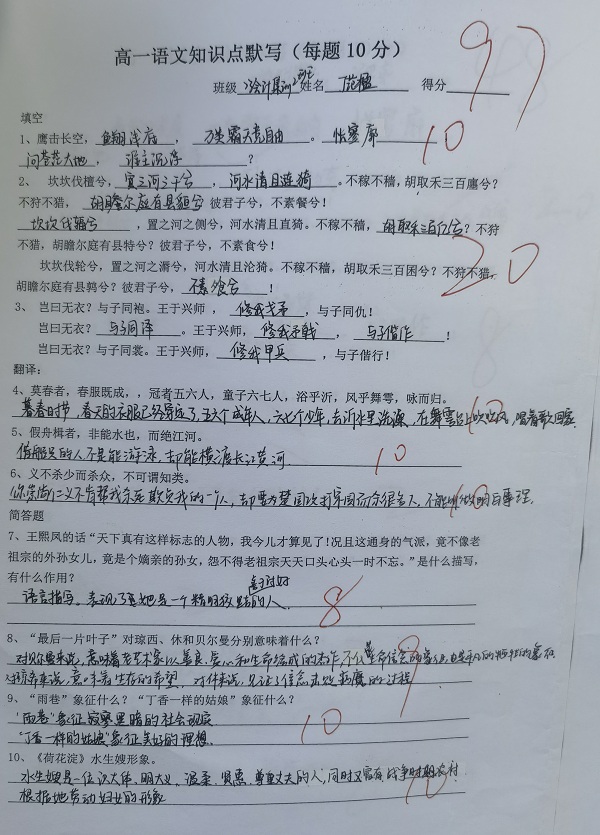 高一语文知识点默写（每题10分）
班级 会计 2班 姓名 范 得分 97
填空
1、鹰击长空，鱼翔浅底，万类霜天竞自由。怅寥廓 10
问苍茫大地，谁主沉浮？
2、 坎坎伐檀兮，寘之河之干兮，河水清且涟猗。不稼不穑，胡取禾三百廛兮？
不狩不猎，胡瞻尔庭有县貆兮 彼君子兮，不素餐兮！
坎坎伐辐兮，置之河之侧兮，河水清且直猗。不稼不穑，胡取禾三百亿兮？不狩
不猎，胡瞻尔庭有县特兮？彼君子兮，不素食兮！
坎坎伐轮兮，置之河之漘兮，河水清且沦猗。不稼不穑，胡取禾三百囷兮？不狩不猎，
胡瞻尔庭有县鹑兮？彼君子兮，不素飧兮！ 20
3、 岂曰无衣？与子同袍。王于兴师 ，修我戈矛，与子同仇！
岂曰无衣？与子同泽。王于兴师，修我矛戟，与子偕作！
岂曰无衣？与子同裳。王于兴师，修我甲兵，与子偕行！
翻译：
4、莫春者，春服既成，，冠者五六人，童子六七人，浴乎沂，风乎舞雩，咏而归。
暮春时节，春天的衣服已经穿定了，五六个成年人，六七个少年，去沂水里洗澡，在舞雩台上吹吹风，唱着歌回家 10
5、假舟楫者，非能水也，而绝江河。
借船只的人不是能游泳，却能横渡长江黄河 10
6、义不杀少而杀众，不可谓知类。
你崇尚仁义不肯帮我杀死欺负我的一个人，却要为楚国攻打宋国而杀很多人，不能 明白事理. 10
简答题
7、王熙凤的话“天下真有这样标志的人物，我今儿才算见了！况且这通身的气派，竟不像老
祖宗的外孙女儿，竟是个嫡亲的孙女，怨不得老祖宗天天口头心头一时不忘。”是什么描写，
有什么作用？
语言描写。表现了 她是一个精明 的人. 8
8、“最后一片叶子”对琼西、休和贝尔曼分别意味着什么？
对贝尔曼来说，意味着 艺术家以善良、爱心和生命绘成的杰作，
对琼希来说，意味着生存的希望，对休来说，见证了信念 的过程 9
9、“雨巷”象征什么？“丁香一样的姑娘”象征什么？
“雨巷”象征寂寥黑暗的社会现实
“丁香一样的姑娘”象征美好的理想. 10
10、《荷花淀》水生嫂形象。
水生嫂是一位识大体、明大义、温柔、贤惠、尊重丈夫的人，同时又富有战争时期农村
根据地劳动妇女的形象 10